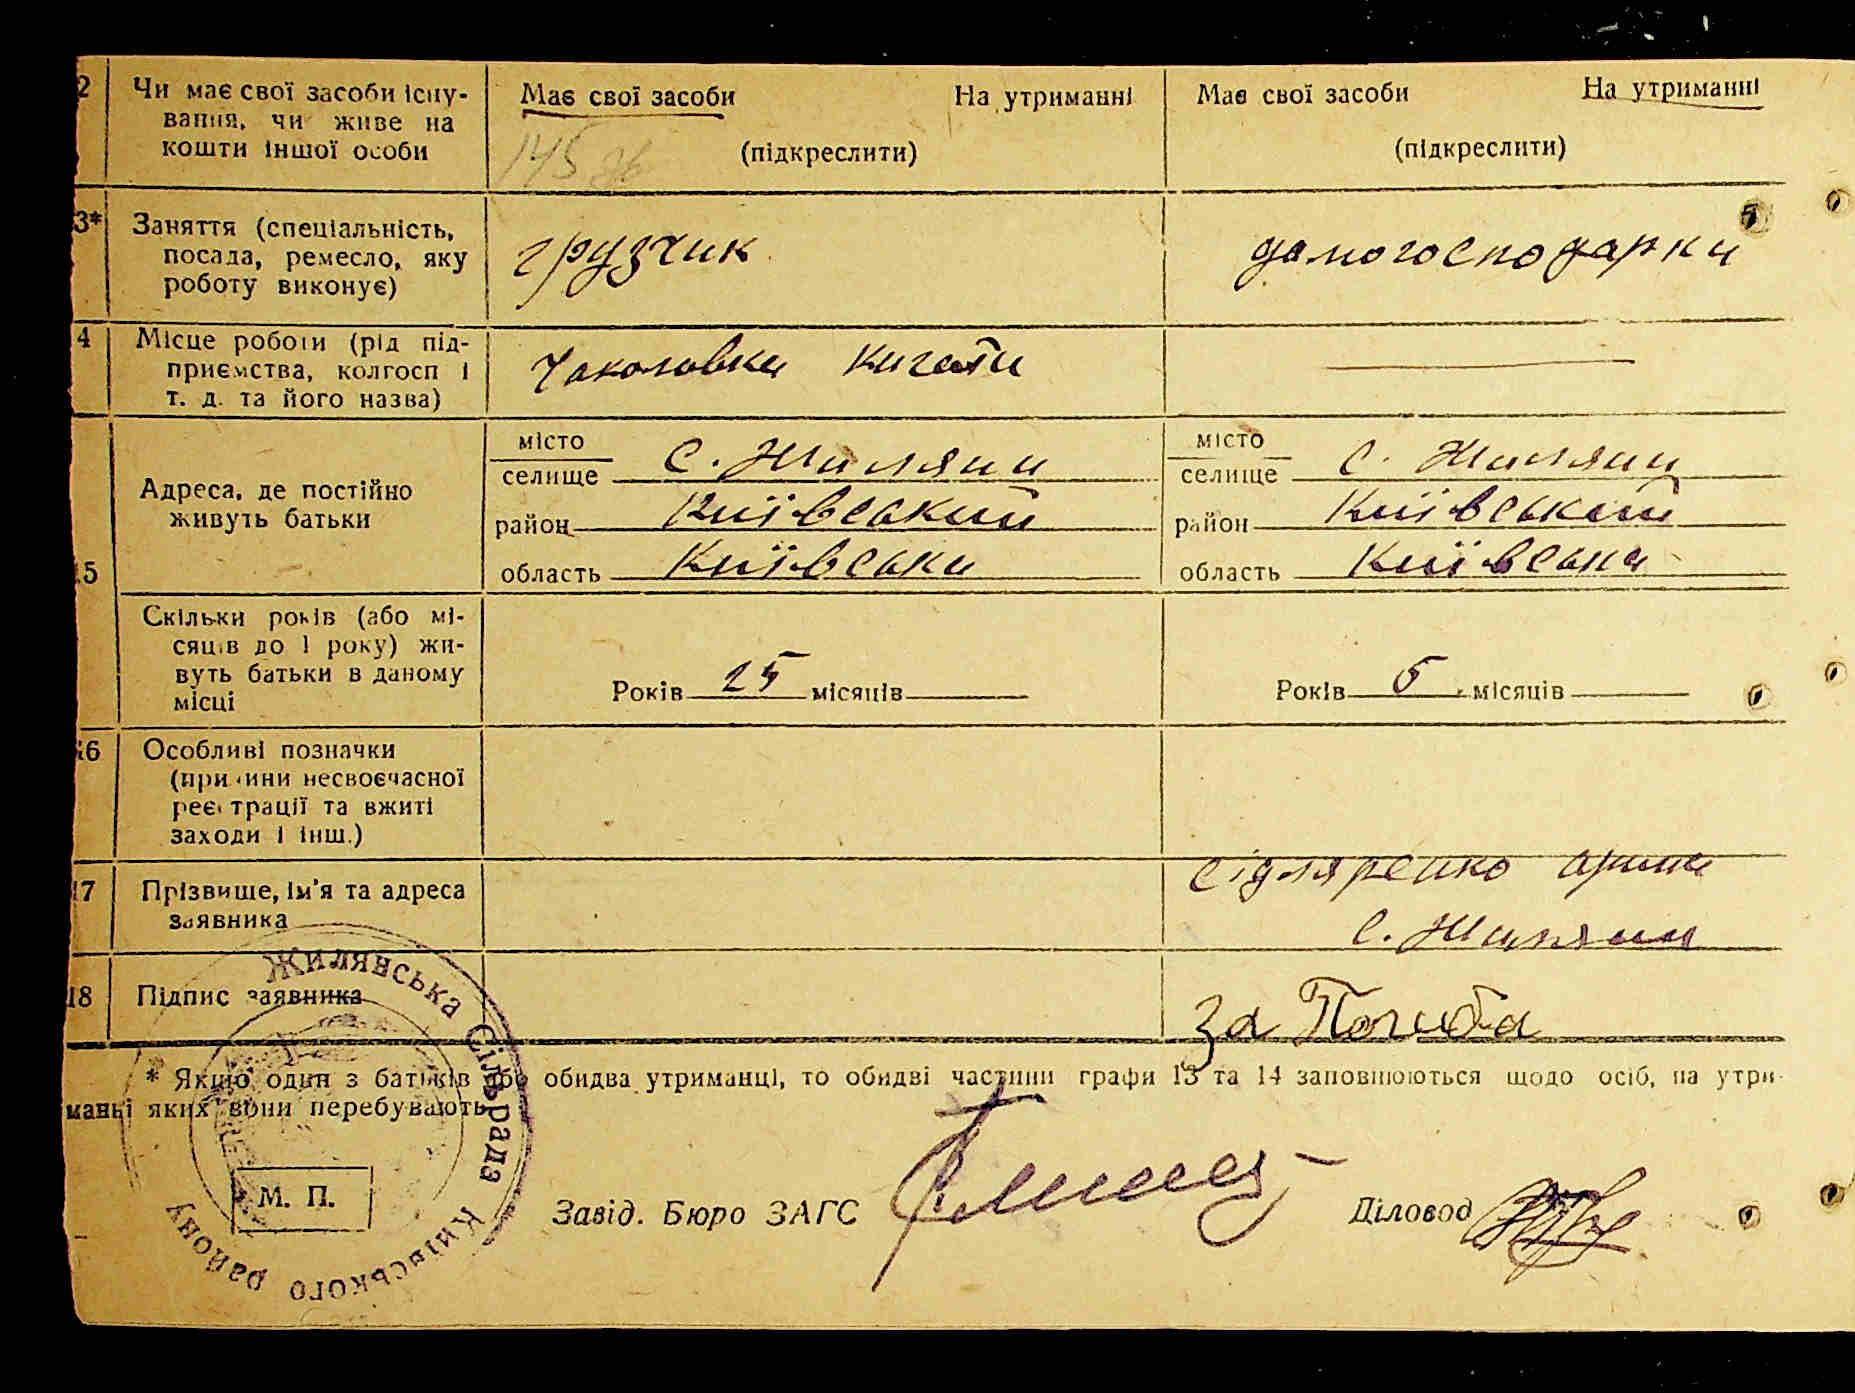 2 Чи має свої засоби існу-
вання, чи живе на
кошти іншої особи
Має свої засоби На утриманні
(підкреслити)
145
Має свої засоби На утриманні
(підкреслити)
3* Заняття (спеціальність,
посада, ремесло, яку
роботу виконує)
грузчик
домогосподарка
4 Місце роботи (рід під-
приємства, колгосп і
т. д. та його назва)
Чоколовка
15 Адреса, де постійно
живуть батьки
місто
селище с. Жиляни
район Київський
область Київська
місто
селище с. Жиляни
район Київський
область Київська
Скільки років (або мі-
сяців до 1 року) жи-
вуть батьки в даному
місці
Років 25 місяців
Років 5 місяців
16 Особливі позначки
(причини несвоєчасної
реєстрації та вжиті
заходи і інш.)
17 Прізвище, ім'я та адреса
заявника
Сідляренко
с. Жиляни
18 Підпис заявника
За
* Якщо один з батьків або обидва утриманці, то обидві частини графи 13 та 14 заповнюються щодо осіб, на утри-
манні яких вони перебувають
М. П.
Жилянська Сільрада Київського району
Завід. Бюро ЗАГС
Діловод